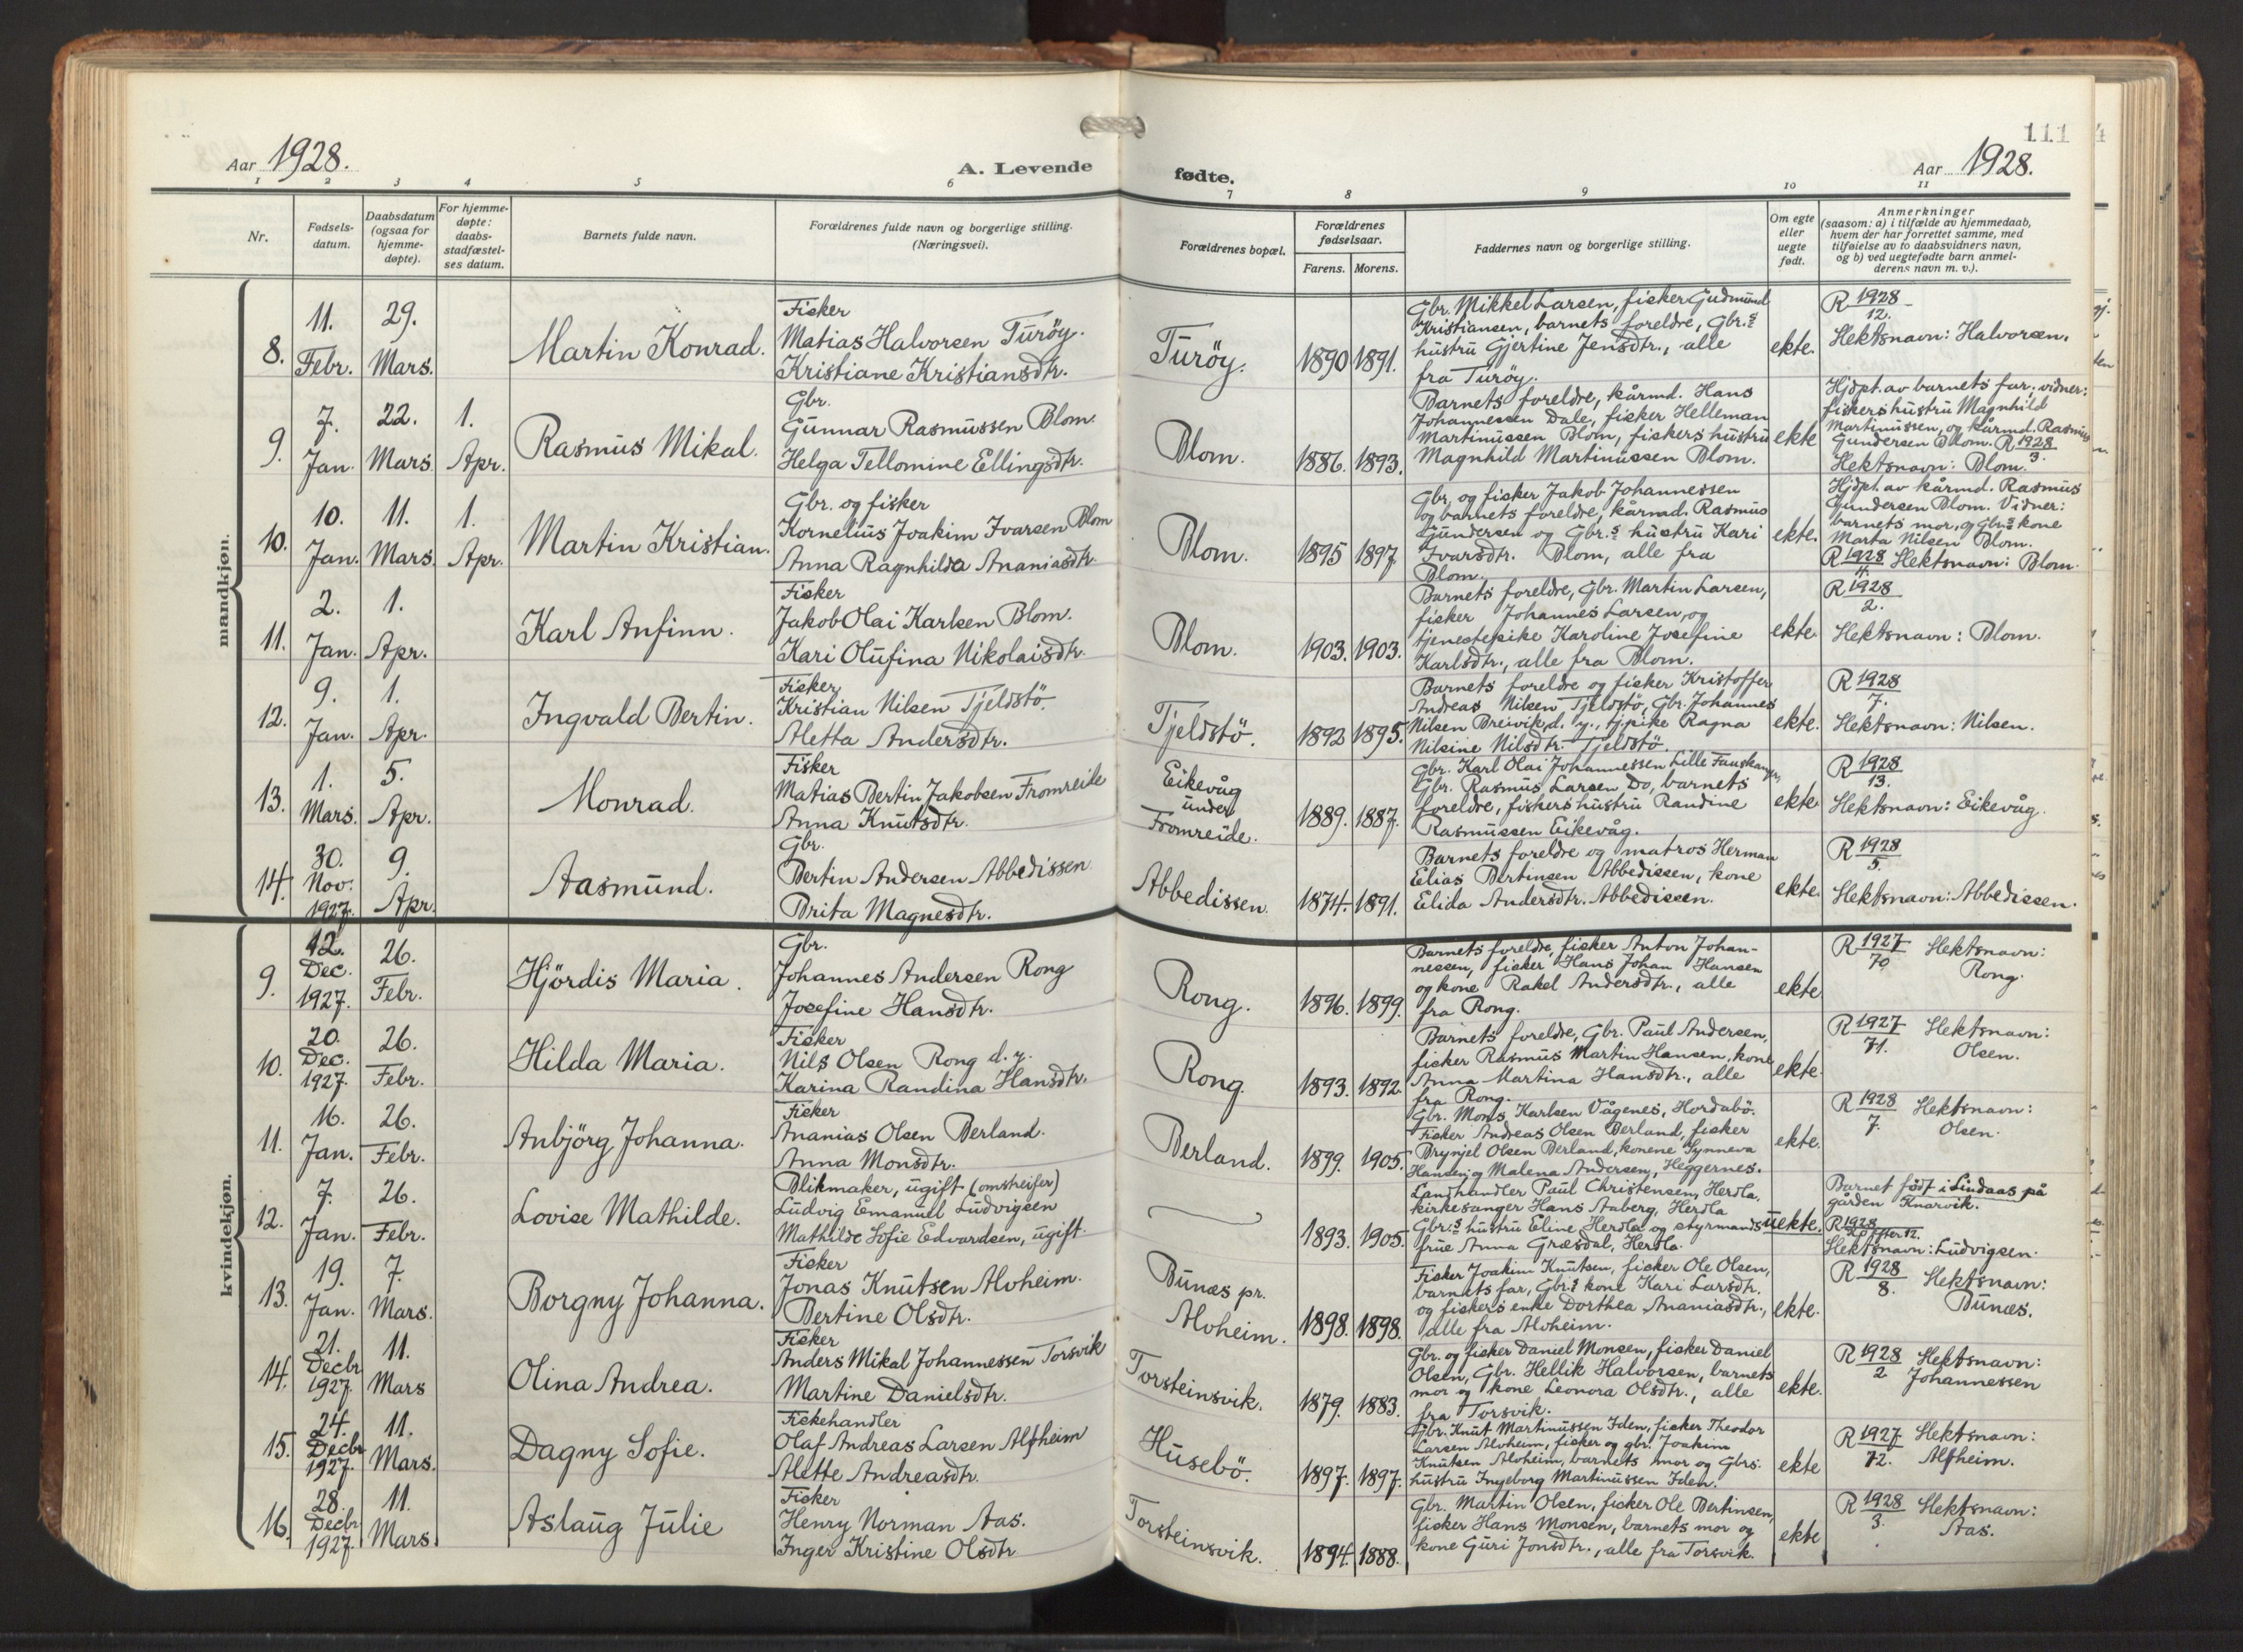 111
Aar 1928.
A. Levende
fødte.
Aar 1928.
1 2 3 4 5 6 7 8 9 10 11
Nr.
Fødsels-
datum.
Daabsdatum
(ogsaa for
hjemme-
døpte).
For hjemme-
døpte:
daabs-
stadfæstel-
ses datum.
Barnets fulde navn.
Forældrenes fulde navn og borgerlige stilling.
(Næringsvei).
Forældrenes bopæl.
Forældrenes
fødselsaar.
Farens. Morens.
Faddernes navn og borgerlige stilling.
Om egte
eller
uegte
født.
Anmerkninger
(saasom: a) i tilfælde av hjemmedaab,
hvem der har forrettet samme, med
tilføielse av to daabsvidners navn,
og b) ved uegtefødte barn anmel-
derens navn m. v.).
mandkjøn.
8.
11.
Febr.
29.
Mars.
Martin Konrad.
Fisker
Matias Halvorsen Turöy.
Kristiane Kristiansdtr.
Turöy.
1890 1891.
Gbr. Mikkel Larsen, fisker Gudmund
Kristiansen, barnets foreldre, Gbr.s
hustru Gjertine Jensdtr., alle
fra Turöy.
ekte.
R 1928
12.
Slektsnavn: Halvorsen.
9.
7.
Jan.
22.
Mars
1.
Apr.
Rasmus Mikal.
Gbr.
Gunnar Rasmussen Blom.
Helga Tellomine Ellingsdtr.
Blom.
1886. 1893.
Barnets foreldre, kårmd. Hans
Johannessen Dale, fisker Helleman
Martinussen Blom, fiskers hustru
Magnhild Martinussen Blom.
ekte
Hjdpt. av barnets far; vidner:
fiskers hustru Magnhild
Martinussen, og kårmd. Rasmus
Gundersen Blom. R 1928
3.
Slektsnavn: Blom.
10.
10.
Jan.
11.
Mars.
1.
Apr.
Martin Kristian.
Gbr. og fisker
Kornelius Joakim Ivarsen Blom
Anna Ragnhilda Ananiasdtr.
Blom.
1895 1897
Gbr. og fisker Jakob Johannessen
og barnets foreldre, kårmd. Rasmus
Gundersen og Gbr.s hustru Kari
Ivarsdtr. Blom, alle fra
Blom.
ekte.
Hjdpt. av kårmd. Rasmus
Gundersen Blom. Vidner:
barnets mor, og Gbr.s kone
Marta Nilsen Blom.
R 1928 Slektsnavn: Blom.
4.
11.
2.
Jan.
1.
Apr.
Karl Anfinn.
Fisker
Jakob Olai Karlsen Blom.
Kari Olufina Nikolaisdtr.
Blom.
1903. 1903.
Barnets foreldre, Gbr. Martin Larsen,
fisker Johannes Larsen, og
tjenestepike Karoline Josefine
Karlsdtr., alle fra Blom.
ekte.
R 1928
2.
Slektsnavn: Blom.
12.
9.
Jan.
1.
Apr.
Ingvald Bertin.
Fisker
Kristian Nilsen Tjeldstö.
Aletta Andersdtr.
Tjeldstö.
1892 1895.
Barnets foreldre og fisker Kristoffer
Andreas Nilsen Tjeldstö, Gbr. Johannes
Nilsen Breivik, d. y., tj.pike Ragna
Nilsine Nilsdtr. Tjeldstö.
ekte.
R 1928
7.
Slektsnavn: Nilsen.
13.
1.
Mars.
5.
Apr.
Monrad.
Fisker
Matias Bertin Jakobsen Fromreide
Anna Knutsdtr.
Eikevåg
under
Fromreide.
1889. 1887.
Gbr. Karl Olai Johannessen Lille Fauskanger,
Gbr. Rasmus Larsen Do, barnets
foreldre, fiskers hustru Randine
Rasmussen Eikevåg.
ekte
R 1928
13.
Slektsnavn: Eikevåg.
14.
30.
Nov.
1927.
9.
Apr.
Aasmund.
Gbr.
Bertin Andersen Abbedissen
Brita Magnesdtr.
Abbedissen.
1874. 1891.
Barnets foreldre og matros Herman
Elias Bertinsen Abbedissen, kone
Elida Andersdtr. Abbedissen.
ekte.
R 1928
5.
Slektsnavn: Abbedissen.
kvindekjøn.
9.
12.
Dec.
1927.
26.
Febr.
Hjördis Maria.
Gbr.
Johannes Andersen Rong
Josefine Hansdtr.
Rong.
1896. 1899.
Barnets foreldre, fisker Anton Johan-
nessen, fisker Hans Johan Hansen
og kone Rakel Andersdtr., alle
fra Rong.
ekte
R 1927 Slektsnavn:
70 Rong.
10.
20.
Dec.
1927.
26.
Febr.
Hilda Maria.
Fisker
Nils Olsen Rong d. y.
Karina Randina Hansdtr.
Rong.
1893. 1892.
Barnets foreldre, Gbr. Paul Andersen,
fisker Rasmus Martin Hansen, kone
Anna Martina Hansdtr., alle
fra Rong.
ekte.
R 1927 Slektsnavn:
71. Olsen.
11.
16.
Jan.
26.
Febr.
Anbjörg Johanna.
Fisker
Ananias Olsen Berland.
Anna Monsdtr.
Berland.
1899. 1905.
Gbr. Mons Karlsen Vågenes, Hordabö.
Fisker Andreas Olsen Berland, fisker
Brynjel Olsen Berland, konene Synneva
Hansen, og Malena Andersen, Heggernes.
ekte.
R 1928 Slektsnavn:
7. Olsen.
12.
7.
Jan.
26.
Febr.
Lovise Mathilde.
Blikmaker, ugift (omstreifer)
Ludvig Emanuel Ludvigsen
Mathilde Sofie Edvardsen, ugift.
1893. 1905.
Landhandler Paul Christensen, Herdla,
kirkesanger Hans Aaberg, Herdla
Gbr.s hustru Eline Herdla og styrmands
frue Anna Græsdal, Herdla.
uekte.
Barnet födt i Lindaas på
gården Knarvik.
R 1928
efter 12.
Slektsnavn: Ludvigsen.
13.
19.
Jan.
7.
Mars.
Borgny Johanna.
Fisker
Jonas Knutsen Alvheim.
Bertine Olsdtr.
Bunes pr.
Alvheim.
1898. 1898.
Fisker Joakim Knutsen, fisker Ole Olsen,
barnets far, Gbr.s kone Kari Larsdtr.
og fiskers enke Dorthea Ananiasdtr.,
alle fra Alvheim.
ekte.
R 1928 Slektsnavn:
8. Bunes.
14.
21.
Decbr
1927.
11.
Mars
Olina Andrea.
Fisker
Anders Mikal Johannessen Torsvik
Martine Danielsdtr.
Torsteinsvik.
1879. 1883.
Gbr. og fisker Daniel Monsen, fisker Daniel
Olsen, Gbr. Hellik Halvorsen, barnets
mor og kone Leonora Olsdtr., alle
fra Torsvik.
ekte.
R 1928 Slektsnavn:
2. Johannessen
15.
24.
Decbr
1927.
11.
Mars.
Dagny Sofie.
Fiskehandler
Olaf Andreas Larsen Alfheim
Alette Andreasdtr.
Husebö.
1897. 1897.
Gbr. Knut Martinussen Iden, fisker Theodor
Larsen Alvheim, fisker og gbr. Joakim
Knutsen Alvheim, barnets mor og Gbrs.
hustru Ingeborg Martinussen Iden.
ekte
R 1927 Slektsnavn:
72. Alfheim.
16.
28.
Decbr
1927.
11.
Mars.
Aslaug Julie
Fisker
Henry Norman Aas.
Inger Kristine Olsdtr
Torsteinsvik.
1894. 1888.
Gbr. Martin Olsen, fisker Ole Bertinsen,
fisker Hans Monsen, barnets mor og
kone Guri Jonsdtr., alle fra Torsvik.
ekte
R 1928 Slektsnavn:
3. Aas.